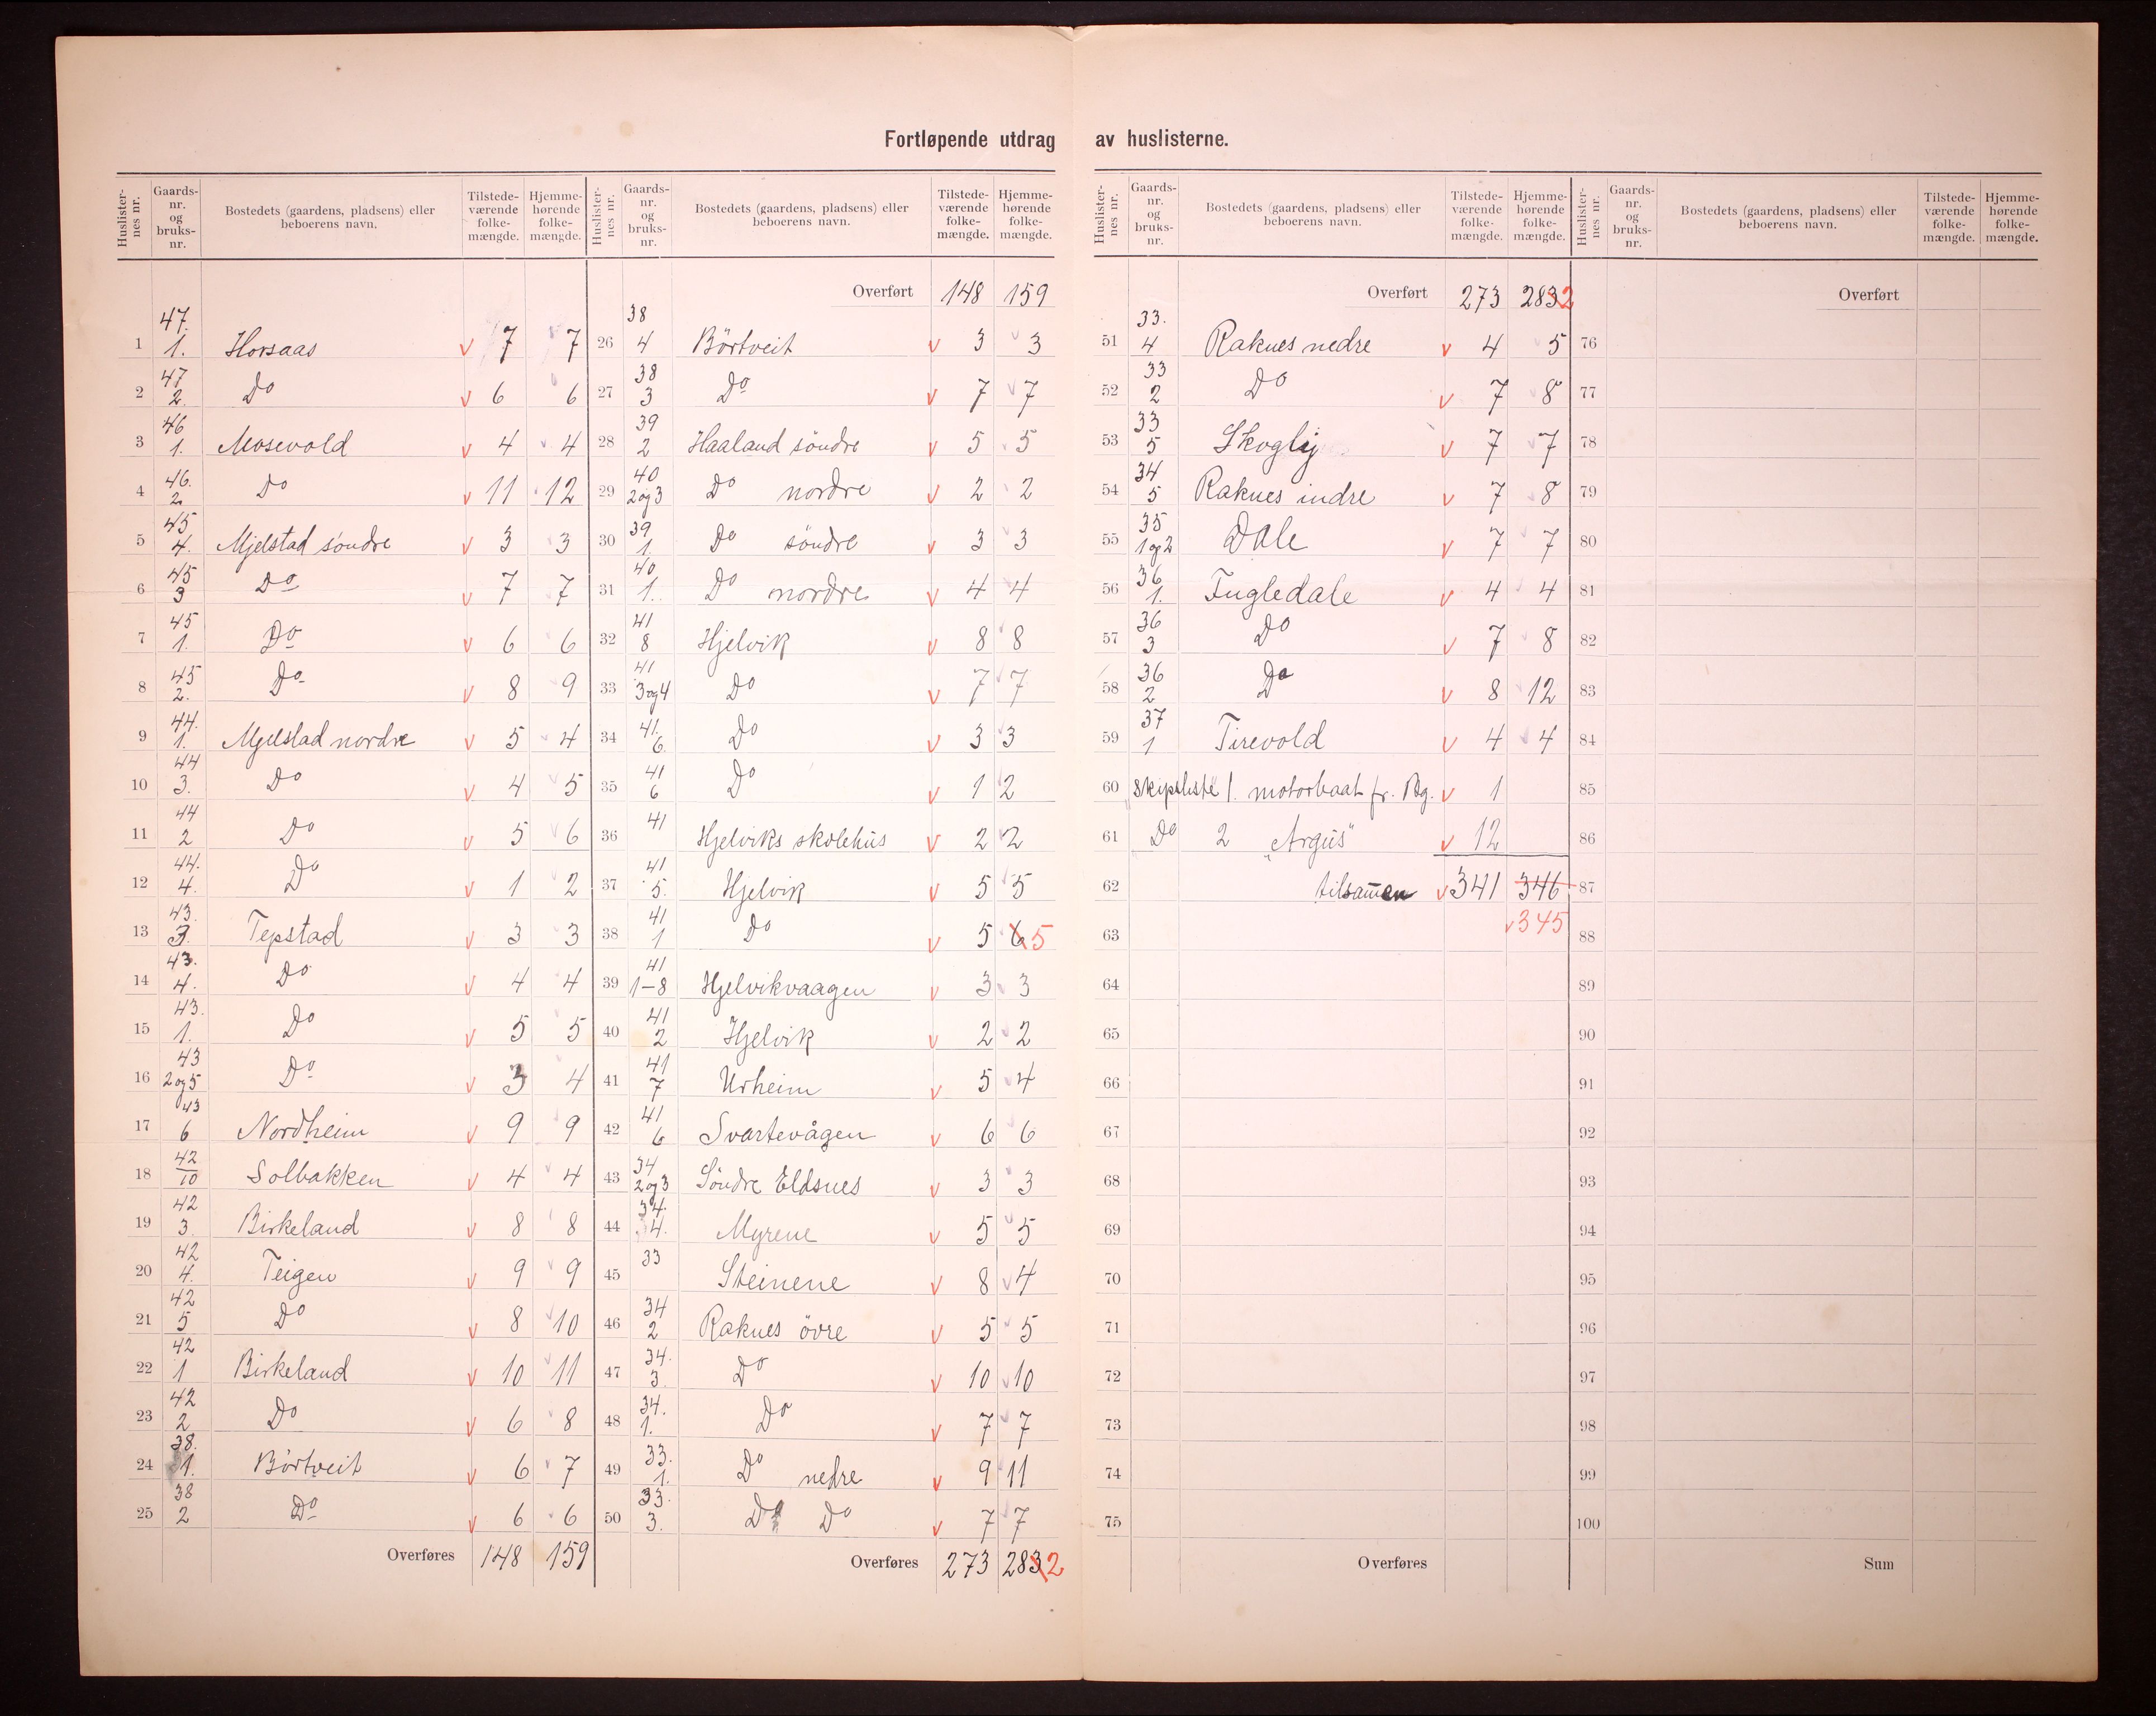 Fortløpende utdrag av huslisterne.
Huslisternes nr. Gaardsnr. og bruksnr. Bostedets (gaardens, pladsens) eller beboerens navn. Tilstedeværende folkemængde. Hjemmehørende folkemængde.
1 47. 1. Horsaas v 7 7
2 47 2. Do v 6 6
3 46 1. Mosevold v 4 4
4 46. 2 Do v 11 12
5 45 4. Mjelstad söndre v 3 3
6 45 3 Do v 7 7
7 45 1. Do v 6 6
8 45 2. Do v 8 9
9 44. 1. Mjelstad nordre v 5 4
10 44 3. Do v 4 5
11 44 2 Do v 5 6
12 44. 4. Do v 1 2
13 43. 3. Tepstad v 3 3
14 43. 4. Do v 4 4
15 43. 1. Do v 5 5
16 43 2 og 5 Do v 3 4
17 43 6 Nordheim v 9 9
18 42 10 Solbakken v 4 4
19 42 3. Birkeland v 8 8
20 42 4. Teigen v 9 9
21 42 5 Do v 8 10
22 42 1 Birkeland v 10 11
23 42 2 Do v 6 8
24 38. 1. Börtveit v 6 7
25 38 2 Do v 6 6
Overføres 148 159
Huslisternes nr. Gaardsnr. og bruksnr. Bostedets (gaardens, pladsens) eller beboerens navn. Tilstedeværende folkemængde. Hjemmehørende folkemængde.
Overført 148 159
26 38 4 Börtveit v 3 3
27 38 3 Do v 7 7
28 39 2 Haaland söndre v 5 5
29 40 2 og 3 Do nordre v 2 2
30 39 1. Do söndre v 3 3
31 40 1. Do nordre v 4 4
32 41 8 Hjelvik v 8 8
33 41 3 og 4 Do v 7 7
34 41. 6. Do v 3 3
35 41 6 Do v 1 2
36 41 Hjelviks skolehus v 2 2
37 41 5. Hjelvik v 5 5
38 41 1 Do v 5 6 5
39 41 1-8 Hjelvikvaagen v 3 3
40 41 2 Hjelvik v 2 2
41 41 7 Urheim v 5 4
42 41 6 Svartevågen v 6 6
43 34 2 og 3 Söndre Eldsnes v 3 3
44 34. 4. Myrene v 5 5
45 33 Steinene v 8 4
46 34 2 Raknes övre v 5 5
47 34. 3 Do v 10 10
48 34. 1. Do v 7 7
49 33. 1. Do nedre v 9 11
50 33. 3. Do Do v 7 7
Overføres 273 283 2
Huslisternes nr. Gaardsnr. og bruksnr. Bostedets (gaardens, pladsens) eller beboerens navn. Tilstedeværende folkemængde. Hjemmehørende folkemængde.
Overført 273 283 2
51 33. 4 Raknes nedre v 4 5
52 33 2 Do v 7 8
53 33 5 Skogly v 7 7
54 34 5 Raknes indre v 7 8
55 35 1 og 2 Dale v 7 7
56 36 1. Fugledale v 4 4
57 36 3 Do v 7 8
58 36 2 Do v 8 12
59 37 1 Tirevold v 4 4
60 Skipsliste 1. motorbaat fr. v 1
61 Do 2 "Argus" v 12
62 tilsammen v 341 346
63 v 345
64
65
66
67
68
69
70
71
72
73
74
75
Overføres
Huslisternes nr. Gaardsnr. og bruksnr. Bostedets (gaardens, pladsens) eller beboerens navn. Tilstedeværende folkemængde. Hjemmehørende folkemængde.
Overført
76
77
78
79
80
81
82
83
84
85
86
87
88
89
90
91
92
93
94
95
96
97
98
99
100
Sum